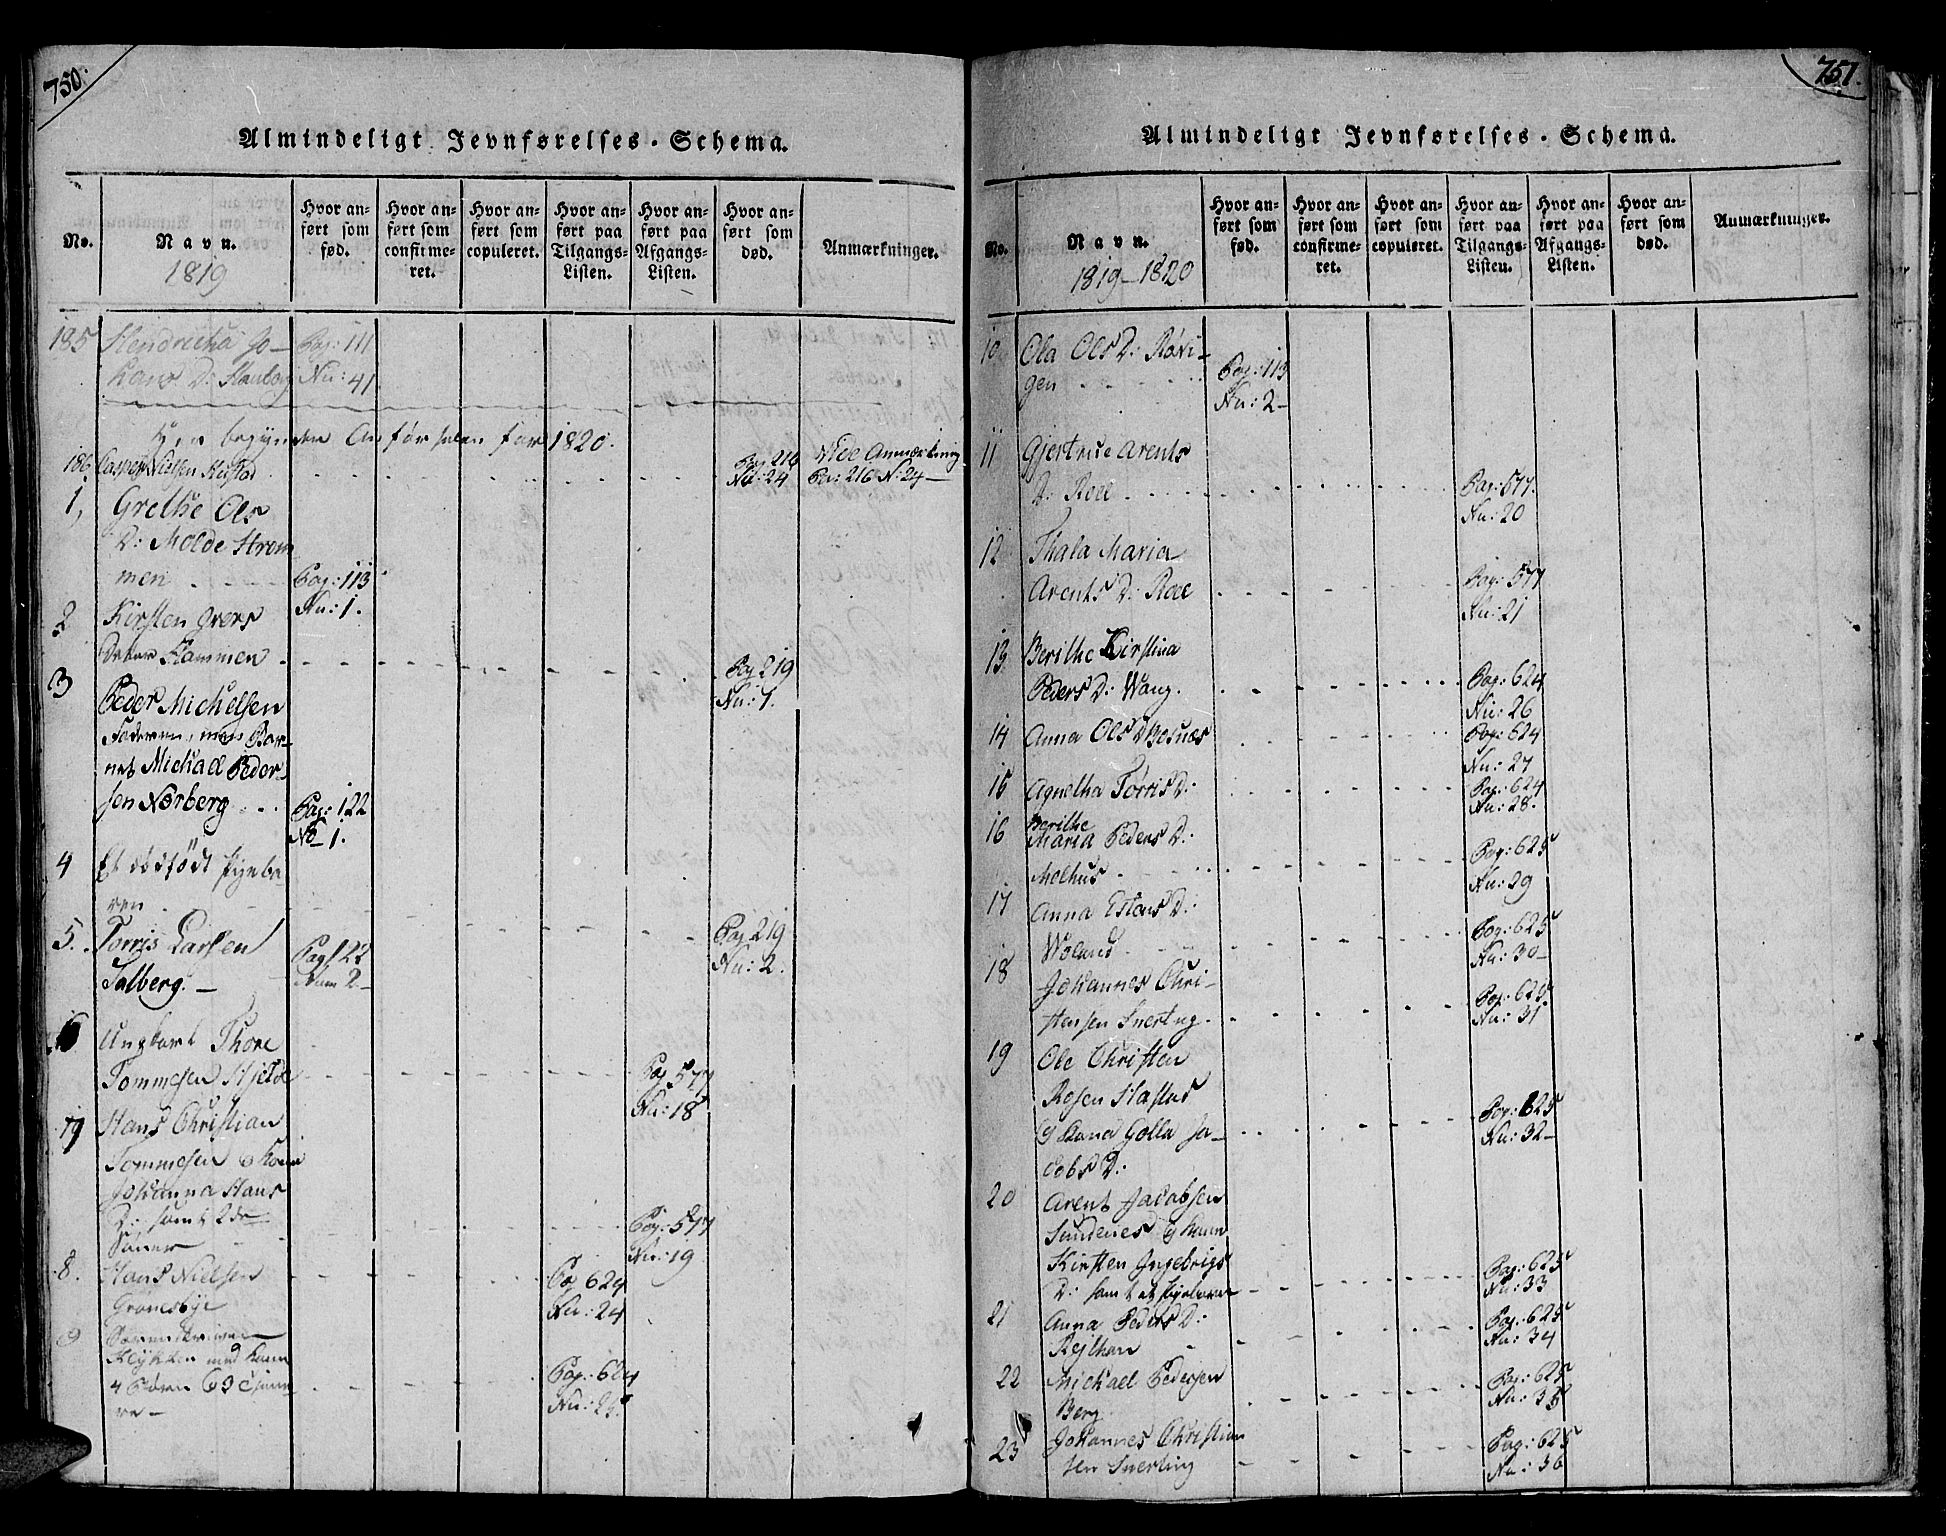 750.
Almindeligt Jevnførelses-Schema.
No.
Navn.
1819
Hvor anført som fød.
Hvor anført som confirmeret.
Hvor anført som copuleret.
Hvor anført paa Tilgangs-Listen.
Hvor anført paa Afgangs-Listen.
Hvor anført som død.
Anmærkninger.
185 Hendricha Jo- Pag: 111
hans D: Nu: 41
Her begynder Anførselen for 1820.
186 Casper Nielsen Pag: 216 Vide Anmærkning
Nu: 24 Pag: 216 N: 24
1, Grethe Ols
D: Molde Strøm
men Pag: 113
Nu: 1.
2 Kirsten Ivers
Datter Hammen Pag 219
Nu: 1.
3 Peder Michelsen
Faderen, men Bar-
net Michael Peder-
sen Norberg Pag: 122
No 1.
4 Et dødfødt Pigeba
ren Pag 219
Nu: 2.
5. Torris Larsen Pag 122
Salberg. Num 2
6 Ungkarl Thore
Tommesen Pag 577
Nu: 18
7 Hans Christian
Tommesen & Kone
Johanna Hans
D: samt 2de
Sönner Pag: 577
Nu: 19
8. Hans Nielsen Pag 624
Grønesbye Nu: 24
9 Sorenskriver
med Kone
4 Børn & 3 Pag: 624
re Nu: 25
751.
Almindeligt Jevnførelses-Schema.
No.
Navn.
1819-1820
Hvor anført som fød.
Hvor anført som confirmeret.
Hvor anført som copuleret.
Hvor anført paa Tilgangs-Listen.
Hvor anført paa Afgangs-Listen.
Hvor anført som død.
Anmærkninger.
10 Ola Ols D: Røvi- Pag: 113
gen Nu: 2
11 Gjertrue Arents
D: Roel Pag: 577.
Nu: 20
12 Thala Maria
Arents D: Roel Pag: 577
Nu: 21
13 Berithe Kirstina
Peders D: Wang. Pag: 624
Nu: 26
14 Anna Ols D Bosnæs Pag: 624
Nu: 27
15 Agnetha Torris D: Pag: 624
Nu: 28.
16 Berithe
Maria Peders D:
Melhus Pag: 625
Nu: 29
17 Anna Estens D:
Woland Pag: 625
Nu: 30
18 Johannes Chri-
stensen Snerting Pag: 625
Nu: 31
19 Ole Christen
Rosen Hastad
& Kona Golla Ja- Pag: 625
cobs D: Nu: 32
20 Arent Jacobsen
Sundenes & Kone
Kirsten Ingebrigs
D: samt et Pigebarn Pag: 625
Nu: 33
21 Anna Peders D: Pag: 625
Rejthan Nu: 34
22 Michael Pedersen Pag: 625
Berg Nu: 35
23 Johannes Christian Pag: 625
sen Snerting Nu: 36